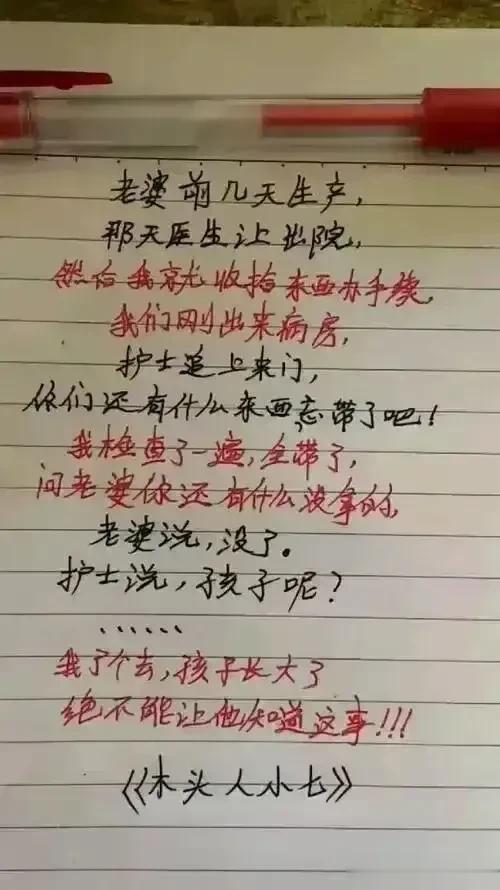 老婆前几天生产,
那天医生让出院,
然后我就收拾东西办手续,
我们刚出来病房,
护士追上来门,
你们还有什么东西忘带了吧!
我检查了一遍,全带了,
问老婆你还有什么没拿的,
老婆说,没了。
护士说,孩子呢?
......
我了个去,孩子长大了
绝不能让他知道这事!!!
《木头人小七》